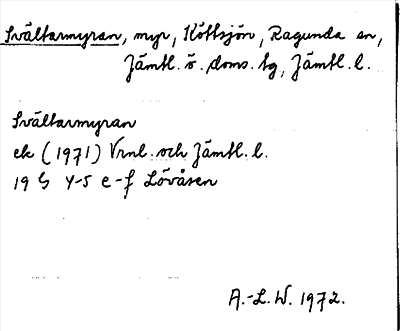 Svältarmyran, myr, Köttsjön, Ragunda sn,
Jämtl. ö. doms. tg, Jämtl. l.
Svältarmyran
ek (1971) Vrnl. och Jämtl. l.
19 G 4-5 e-f Lövåsen
A.-L. W. 1972.